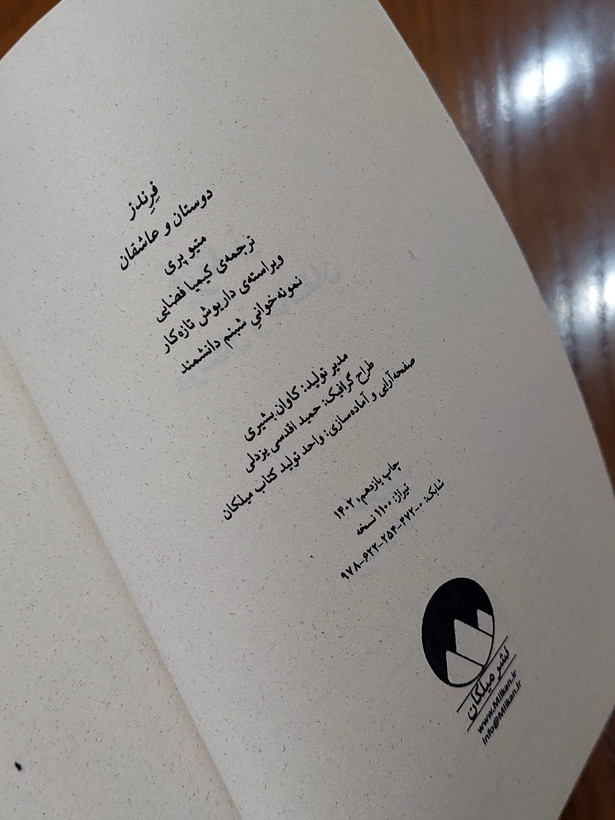 فرندز
دوستان و عاشقان
متیو پری
ترجمه‌ی کیمیا فضایی
ویراسته‌ی داریوش تازه‌کار
نمونه‌خوانیِ شبنم دانشمند
مدیر تولید: کاوان بشیری
طراح گرافیک: حمید اقدسی یزدلی
صفحه‌آرایی و آماده‌سازی: واحد تولید کتاب میلکان
چاپ یازدهم، ۱۴۰۲
تیراژ: ۱۱۰۰ نسخه
شابک: ۰-۴۷۲-۲۵۴-۶۲۲-۹۷۸
نشر میلکان
www.Milkan.ir
Info@Milkan.ir